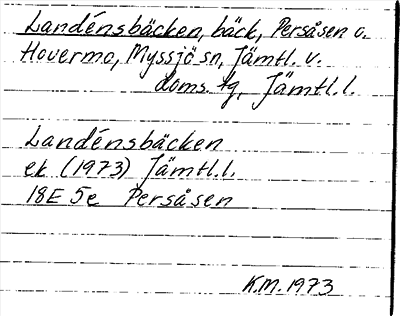 Landénsbäcken, bäck, Persåsen o.
Hovermo, Myssjö sn, Jämtl. v.
doms. tg, Jämtl. l.
Landénsbäcken
ek (1973) Jämtl.l.
18E 5e Persåsen
K.M. 1973